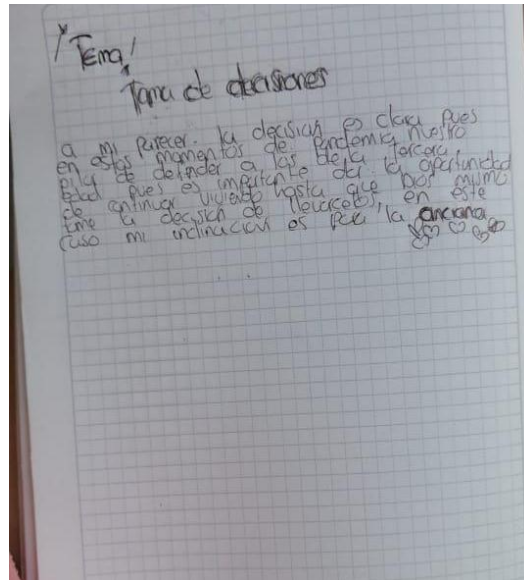 Tema!
Toma de decisiones
a mi parecer. la decisión es clara pues
en estos momentos de pandemia nuestro
de defender a las de la tercera
edad pues es importante dar la oportunidad
de continuar viviendo hasta que Dios mismo
tome la decisión de llevarcelos, en este
caso mi inclinación es para la anciana